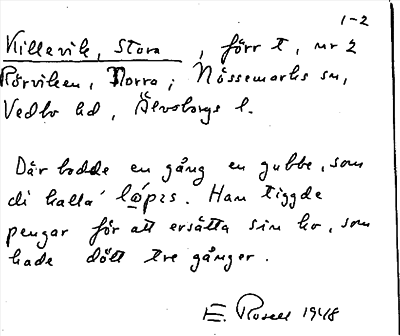 1-2
Killevik, Stora, förr t, nr 2
Rörviken, Norra; Nössemarks sn,
Vedbo hd, Älvsborgs l.
Där bodde en gång en gubbe, som
di kalla' Han tiggde
pengar för att ersätta sin ko, som
hade dött tre gånger.
E. Rosell 1948